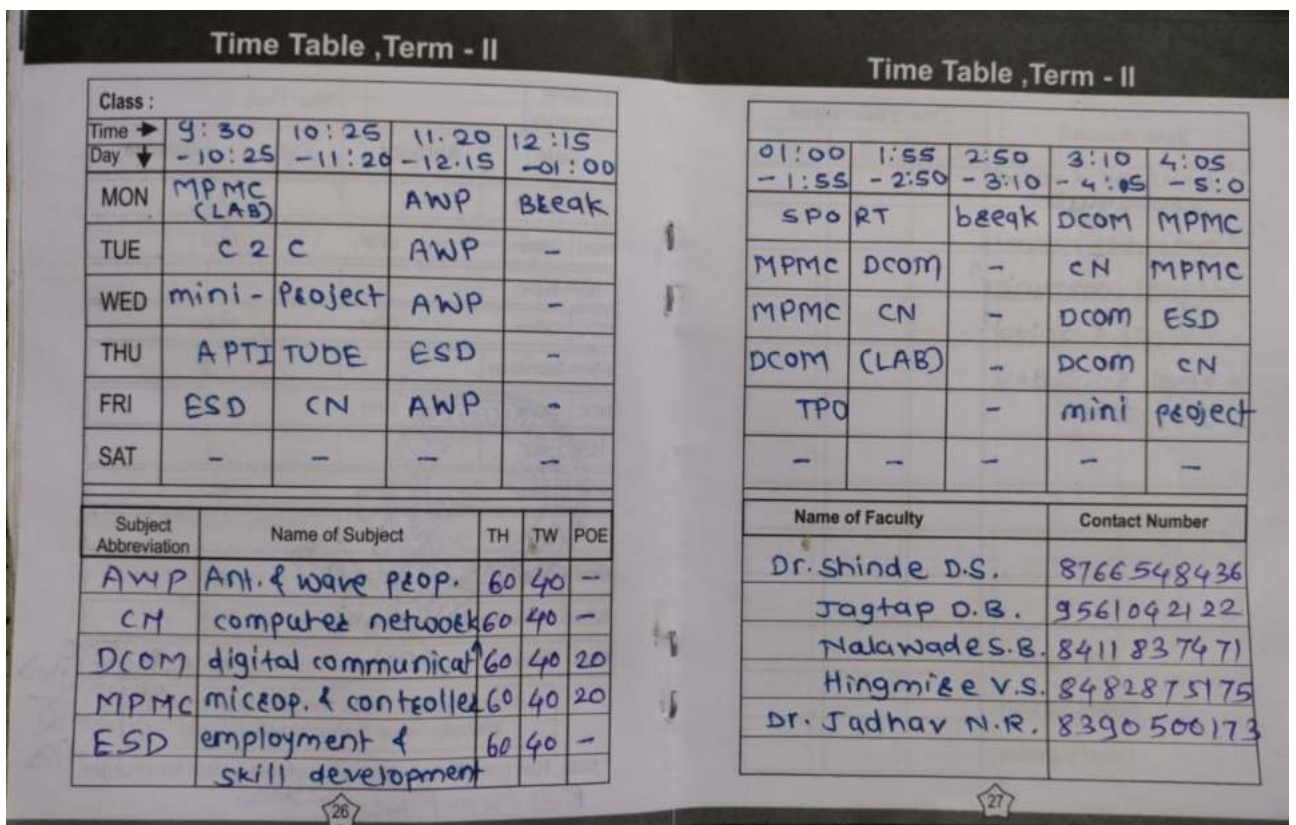 Time Table ,Term - II
Class :
Time 9:30 10:25 11.20 12:15
Day -10:25 -11:20 -12.15 -01:00
MON MPMC (LAB) AWP Break
TUE C2C AWP -
WED mini- Project AWP -
THU APTITUDE ESD -
FRI ESD CN AWP -
SAT - - - -
Subject Abbreviation Name of Subject TH TW POE
AWP Ant. & wave prop. 60 40 -
CN computer network 60 40 -
DCOM digital communicat 60 40 20
MPMC microp. & controller 60 40 20
ESD employment & 60 40 -
skill development
26
Time Table ,Term - II
01:00 1:55 2:50 3:10 4:05
-1:55 -2:50 -3:10 -4:05 -5:0
SPORT break DCOM MPMC
MPMC DCOM - CN MPMC
MPMC CN - DCOM ESD
DCOM (LAB) - DCOM CN
TPO - mini project
- - - - -
Name of Faculty Contact Number
Dr. Shinde D.S. 8766548436
Jagtap D.B. 9561042122
Nalawade S.B. 8411837471
Hingmire V.S. 8482875175
Dr. Jadhav N.R. 8390500173
27